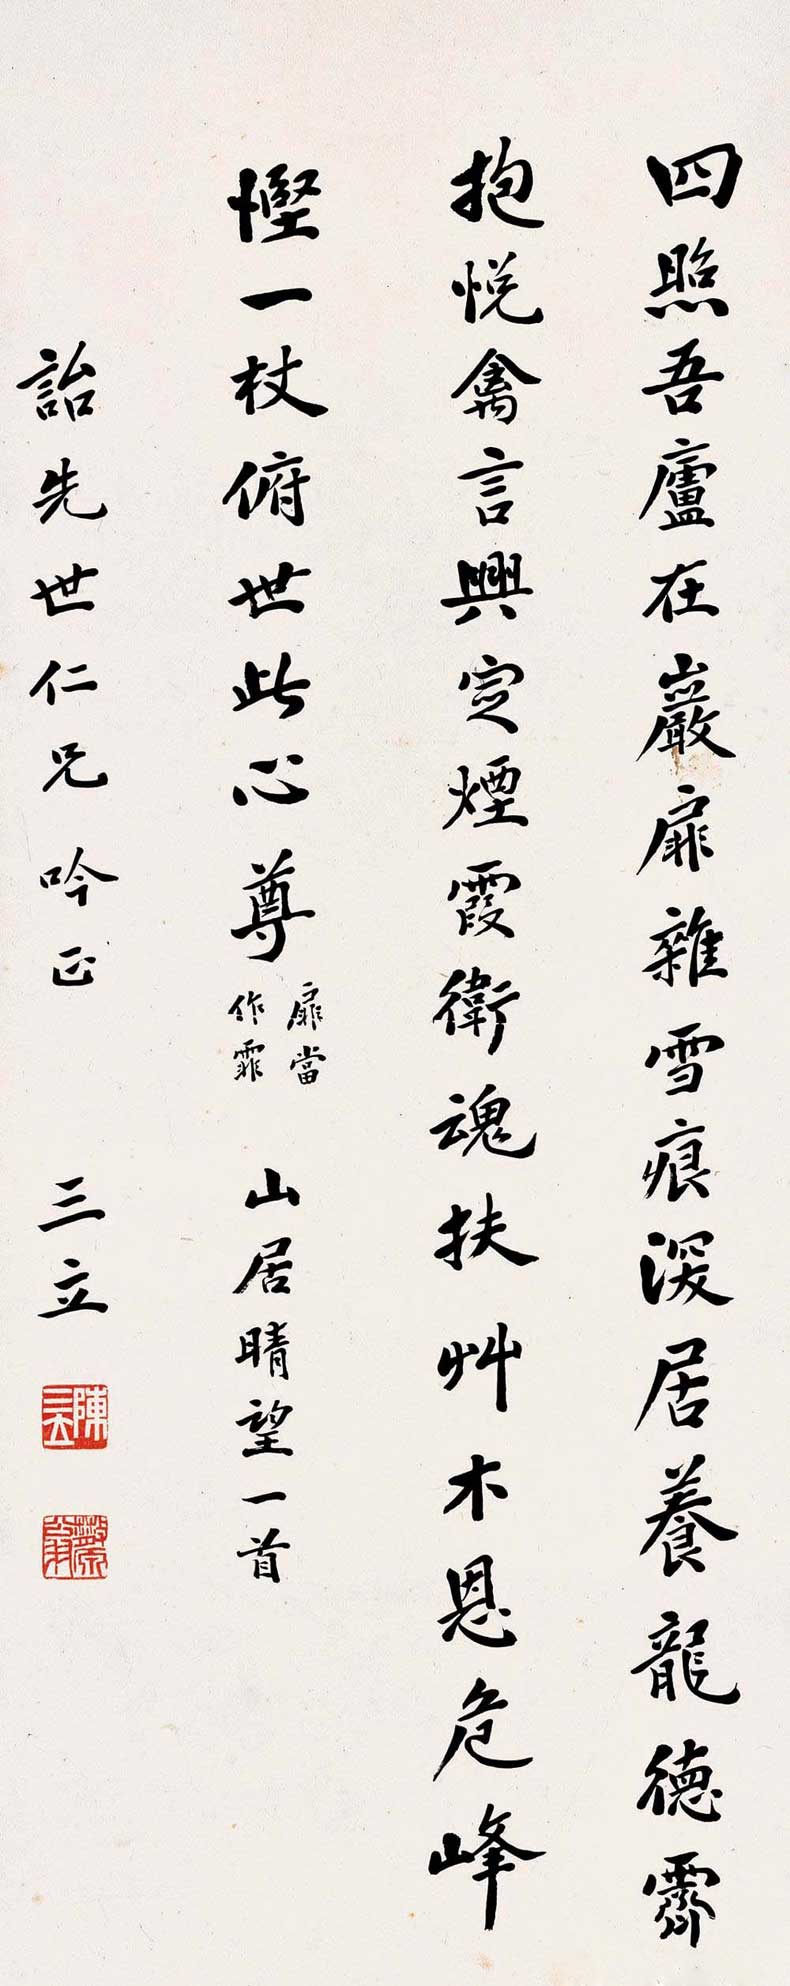 四照吾廬在巖扉雜雪痕深居養龍德霽
抱悅禽言興定煙霞衛魂扶艸木恩危峰
慳一杖俯世此心尊
扉當
作霏
山居晴望一首
詒先世仁兄吟正
三立
陳三立
散原